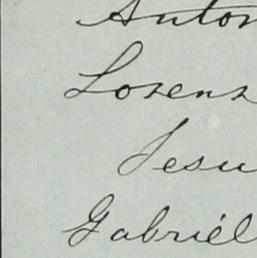 Anton
Lorenz
Jesu
Gabriél